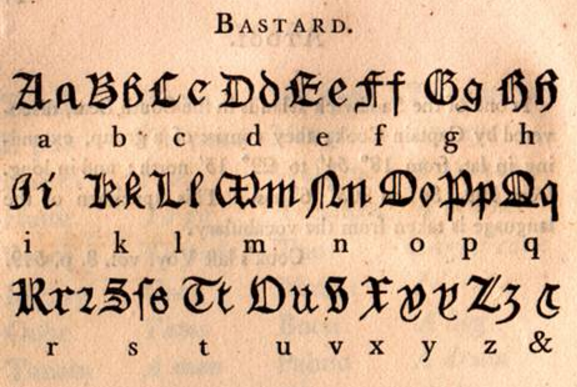 BASTARD.
A a B b C c D d E e F f G g H h
a b c d e f g h
I i K k L l M m N n O o P p Q q
i k l m n o p q
R r ꝛ S ſ s T t U u v X x y Z z &
r s t u v x y z &